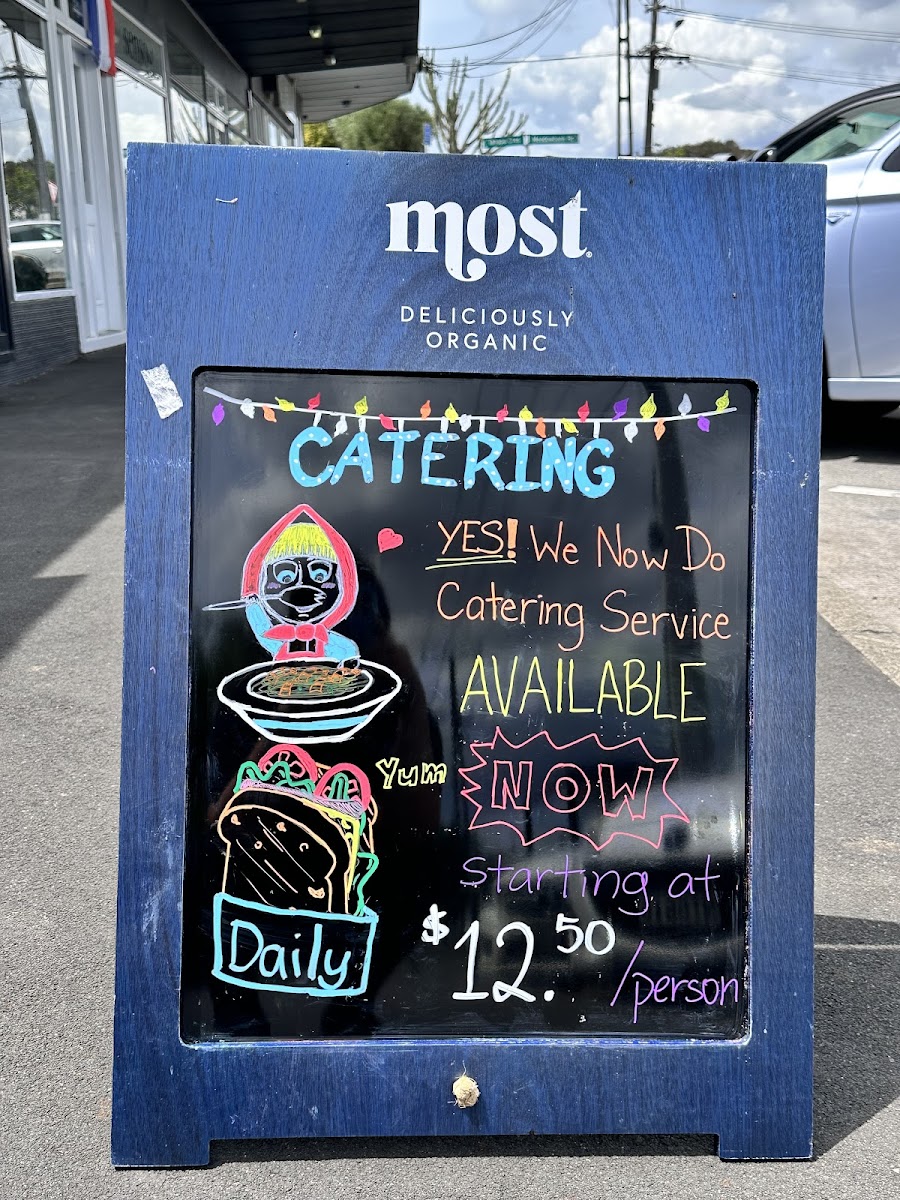 most
DELICIOUSLY
ORGANIC
CATERING
YES! We Now Do
Catering Service
AVAILABLE
NOW
Yum
Starting at
$12.50
/person
Daily